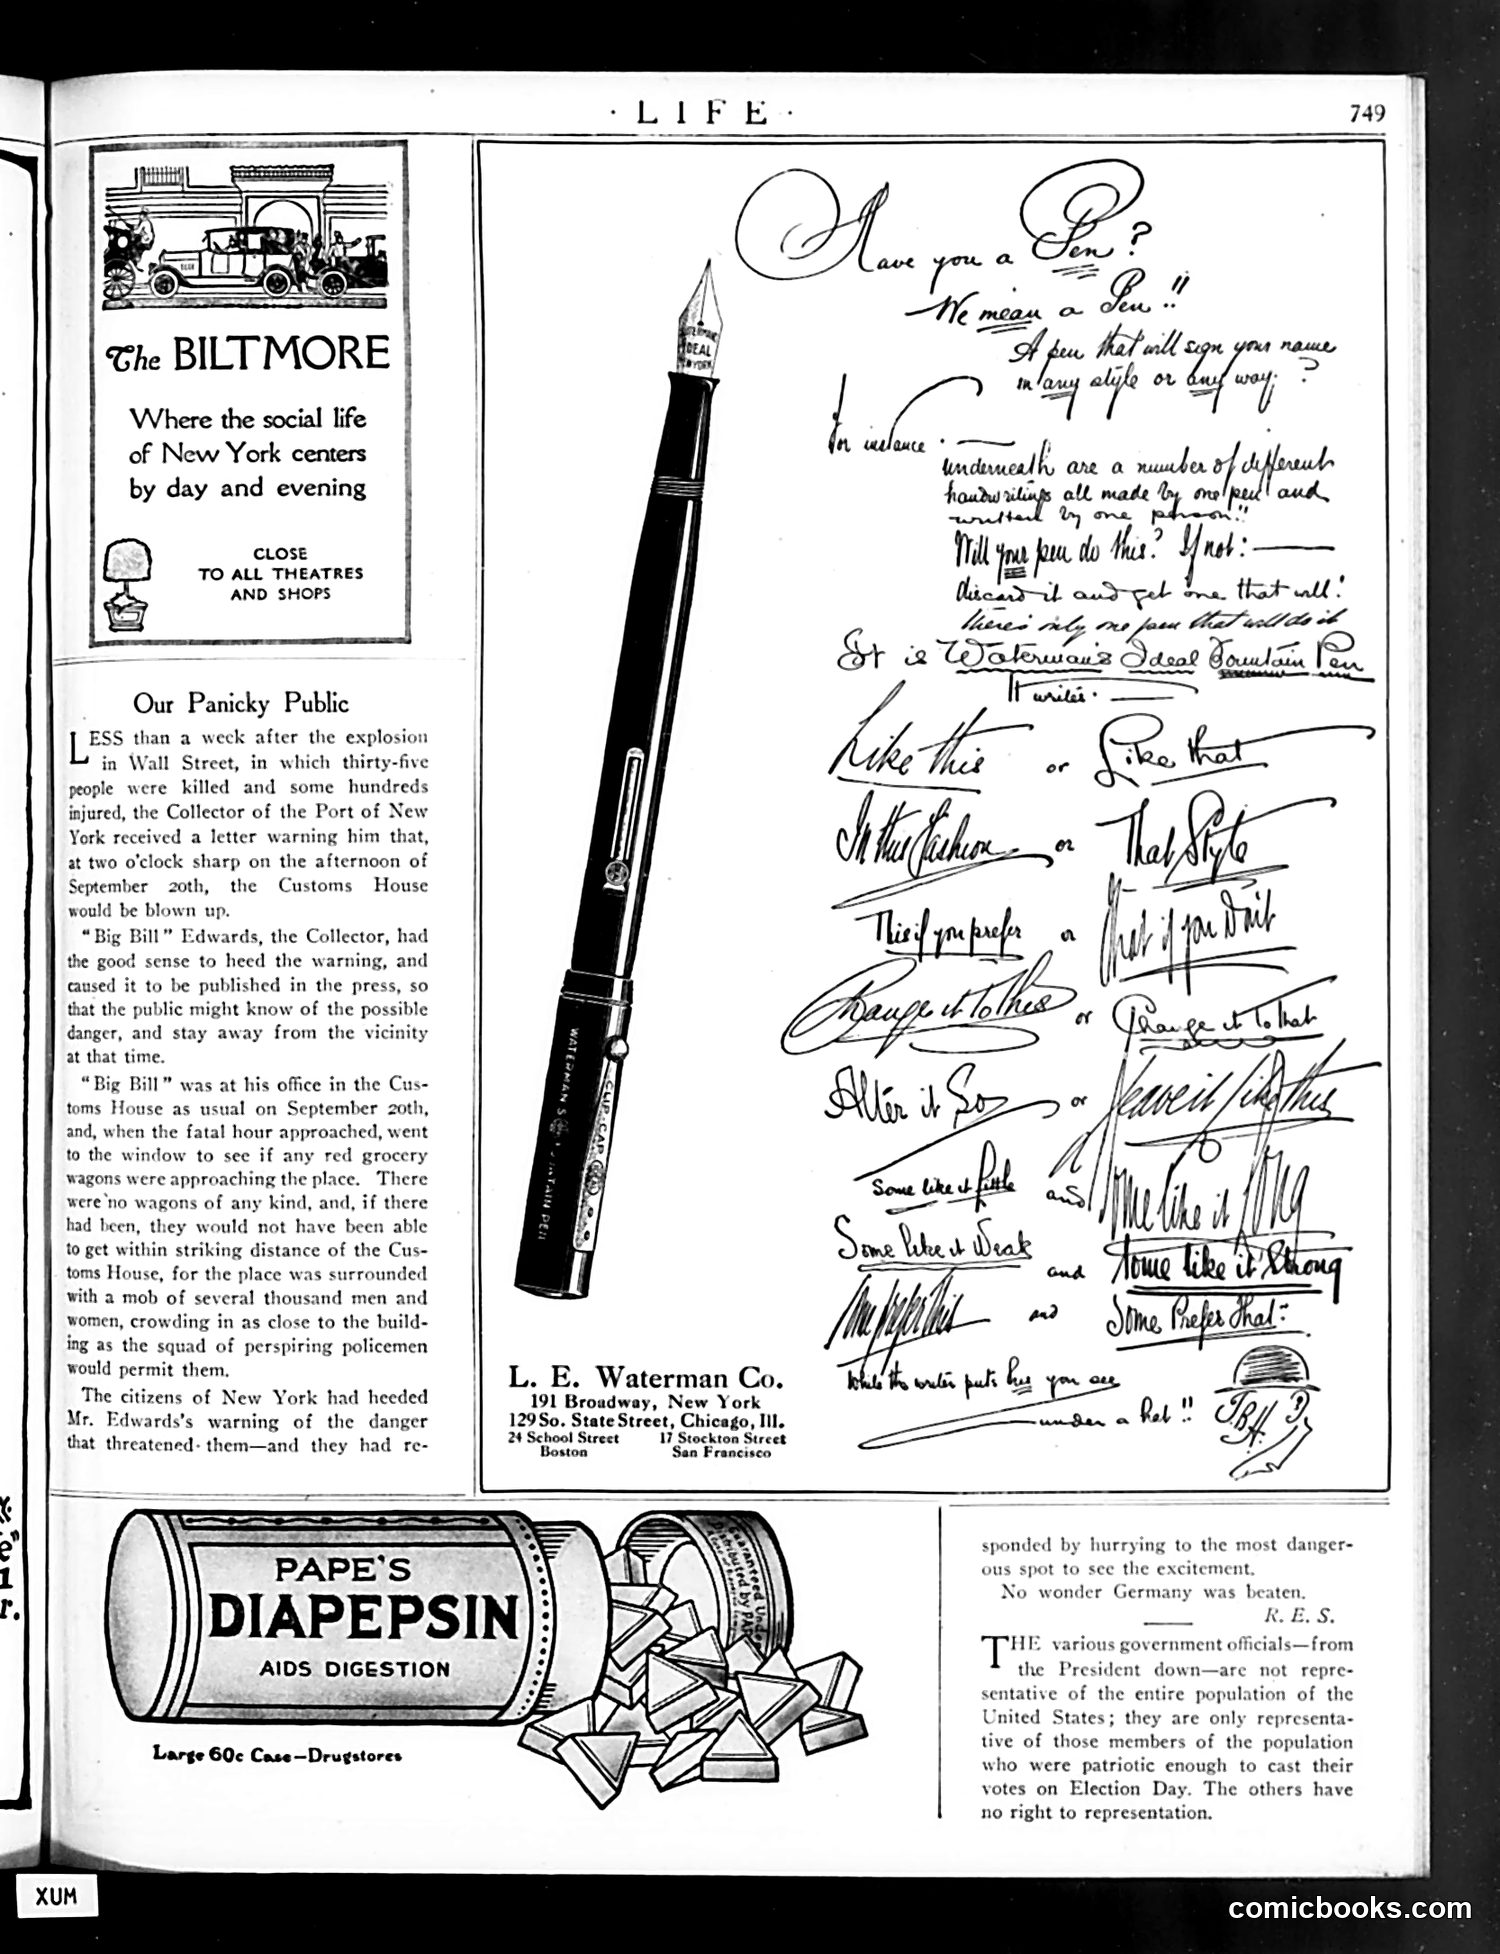 · LIFE ·
749
The BILTMORE
Where the social life
of New York centers
by day and evening
CLOSE
TO ALL THEATRES
AND SHOPS
Our Panicky Public
LESS than a week after the explosion
in Wall Street, in which thirty-five
people were killed and some hundreds
injured, the Collector of the Port of New
York received a letter warning him that,
at two o'clock sharp on the afternoon of
September 20th, the Customs House
would be blown up.
"Big Bill" Edwards, the Collector, had
the good sense to heed the warning, and
caused it to be published in the press, so
that the public might know of the possible
danger, and stay away from the vicinity
at that time.
"Big Bill" was at his office in the Cus-
toms House as usual on September 20th,
and, when the fatal hour approached, went
to the window to see if any red grocery
wagons were approaching the place. There
were no wagons of any kind, and, if there
had been, they would not have been able
to get within striking distance of the Cus-
toms House, for the place was surrounded
with a mob of several thousand men and
women, crowding in as close to the build-
ing as the squad of perspiring policemen
would permit them.
The citizens of New York had heeded
Mr. Edwards's warning of the danger
that threatened them—and they had re-
Have you a Pen?
We mean a Pen!!
A pen that will sign your name
in any style or any way?
for instance
underneath are a number of different
handwritings all made by one pen and
written by one person!!
Will your pen do this? If not:
discard it and get one that will!
there's only one pen that will do it
It is Waterman's Ideal Fountain Pen
It writes
Like this or Like that
In this Fashion or That Style
This if you prefer or That if you Don't
Change it to This or Change it to that
Alter it So or Leave it like this
Some like it Little and Some like it Long
Some like it Weak and Some like it Strong
Some prefer this and Some Prefer that
While the writer puts his you see
under a hat!!
J.B.H.
WATERMAN'S
IDEAL
NEW YORK
WATERMAN'S FOUNTAIN PEN
CLIP-CAP
L. E. Waterman Co.
191 Broadway, New York
129 So. State Street, Chicago, Ill.
24 School Street 17 Stockton Street
Boston San Francisco
PAPE'S
DIAPEPSIN
AIDS DIGESTION
Guaranteed Under
Distributed by PAPE
Large 60c Case—Drugstores
sponded by hurrying to the most danger-
ous spot to see the excitement.
No wonder Germany was beaten.
R. E. S.
THE various government officials—from
the President down—are not repre-
sentative of the entire population of the
United States; they are only representa-
tive of those members of the population
who were patriotic enough to cast their
votes on Election Day. The others have
no right to representation.
XUM
comicbooks.com